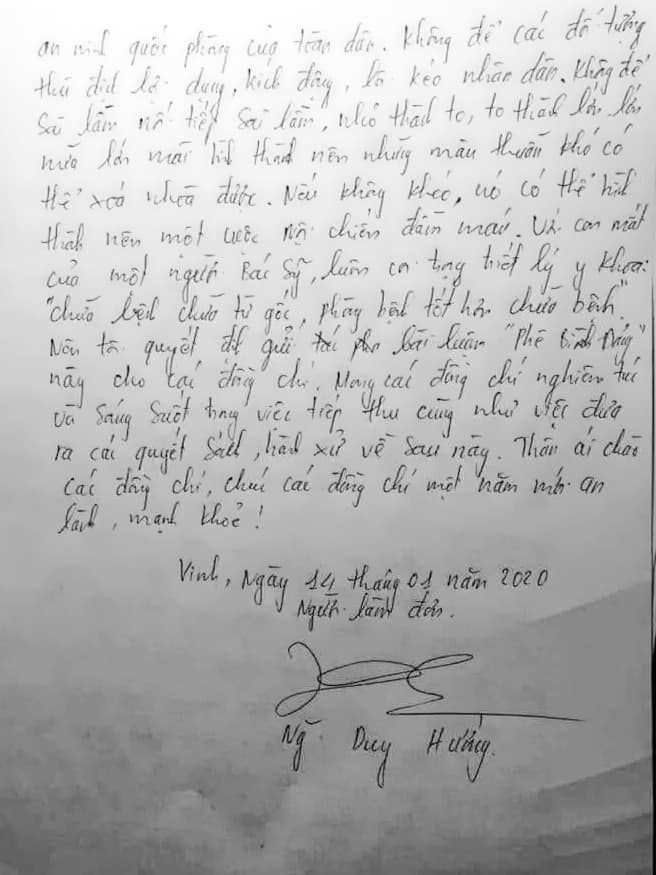 an ninh quốc phòng của toàn dân. Không để các đối tượng
thù địch lợi dụng, kích động, lôi kéo nhân dân. Không để
sai lầm nối tiếp sai lầm, nhỏ thành to, to thành lớn, lớn
nữa lớn mãi hình thành nên những mâu thuẫn khó có
thể xoá nhoà được. Nếu không khéo, nó có thể hình
thành nên một cuộc nội chiến đẫm máu. Với con mắt
của một người Bác Sỹ, luôn coi trọng triết lý y khoa:
"chữa bệnh chữa từ gốc, phòng bệnh tốt hơn chữa bệnh".
Nên tôi quyết định gửi bài luận "Phê Bình Đảng"
này cho các đồng chí. Mong các đồng chí nghiêm túc
và sáng suốt trong việc tiếp thu cũng như việc đưa
ra các quyết sách, hành xử về sau này. Thân ái chào
các đồng chí, chúc các đồng chí một năm mới an
lành, mạnh khoẻ!
Vinh, Ngày 14 tháng 01 năm 2020
Người làm đơn.
Ng̃ Duy Hướng.